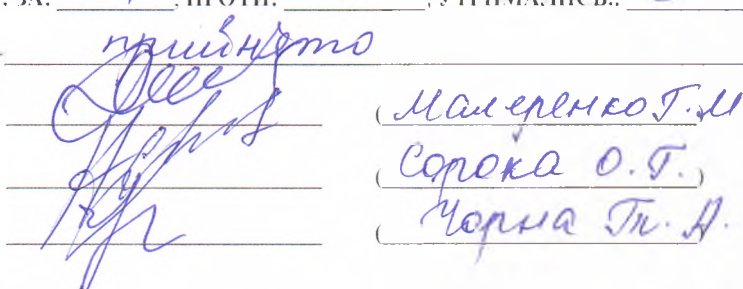 ЗА: ПРОТИ: , УТРИМАЛИСЬ:
прийнято
( Маляренко Г. М
( Сорока О. Г. )
( Чорна Т. А.